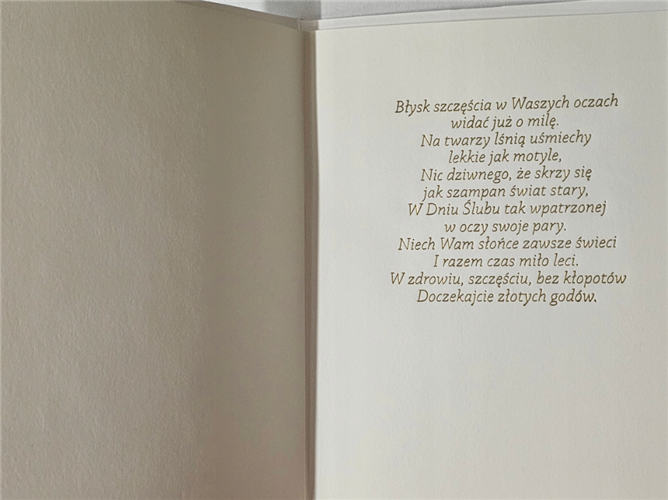 Błysk szczęścia w Waszych oczach
widać już o milę.
Na twarzy lśnią uśmiechy
lekkie jak motyle,
Nic dziwnego, że skrzy się
jak szampan świat stary,
W Dniu Ślubu tak wpatrzonej
w oczy swoje pary.
Niech Wam słońce zawsze świeci
I razem czas miło leci.
W zdrowiu, szczęściu, bez kłopotów
Doczekajcie złotych godów.